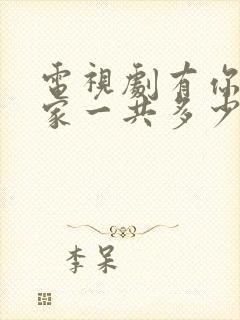 電視劇有你
家一共多少
李呆